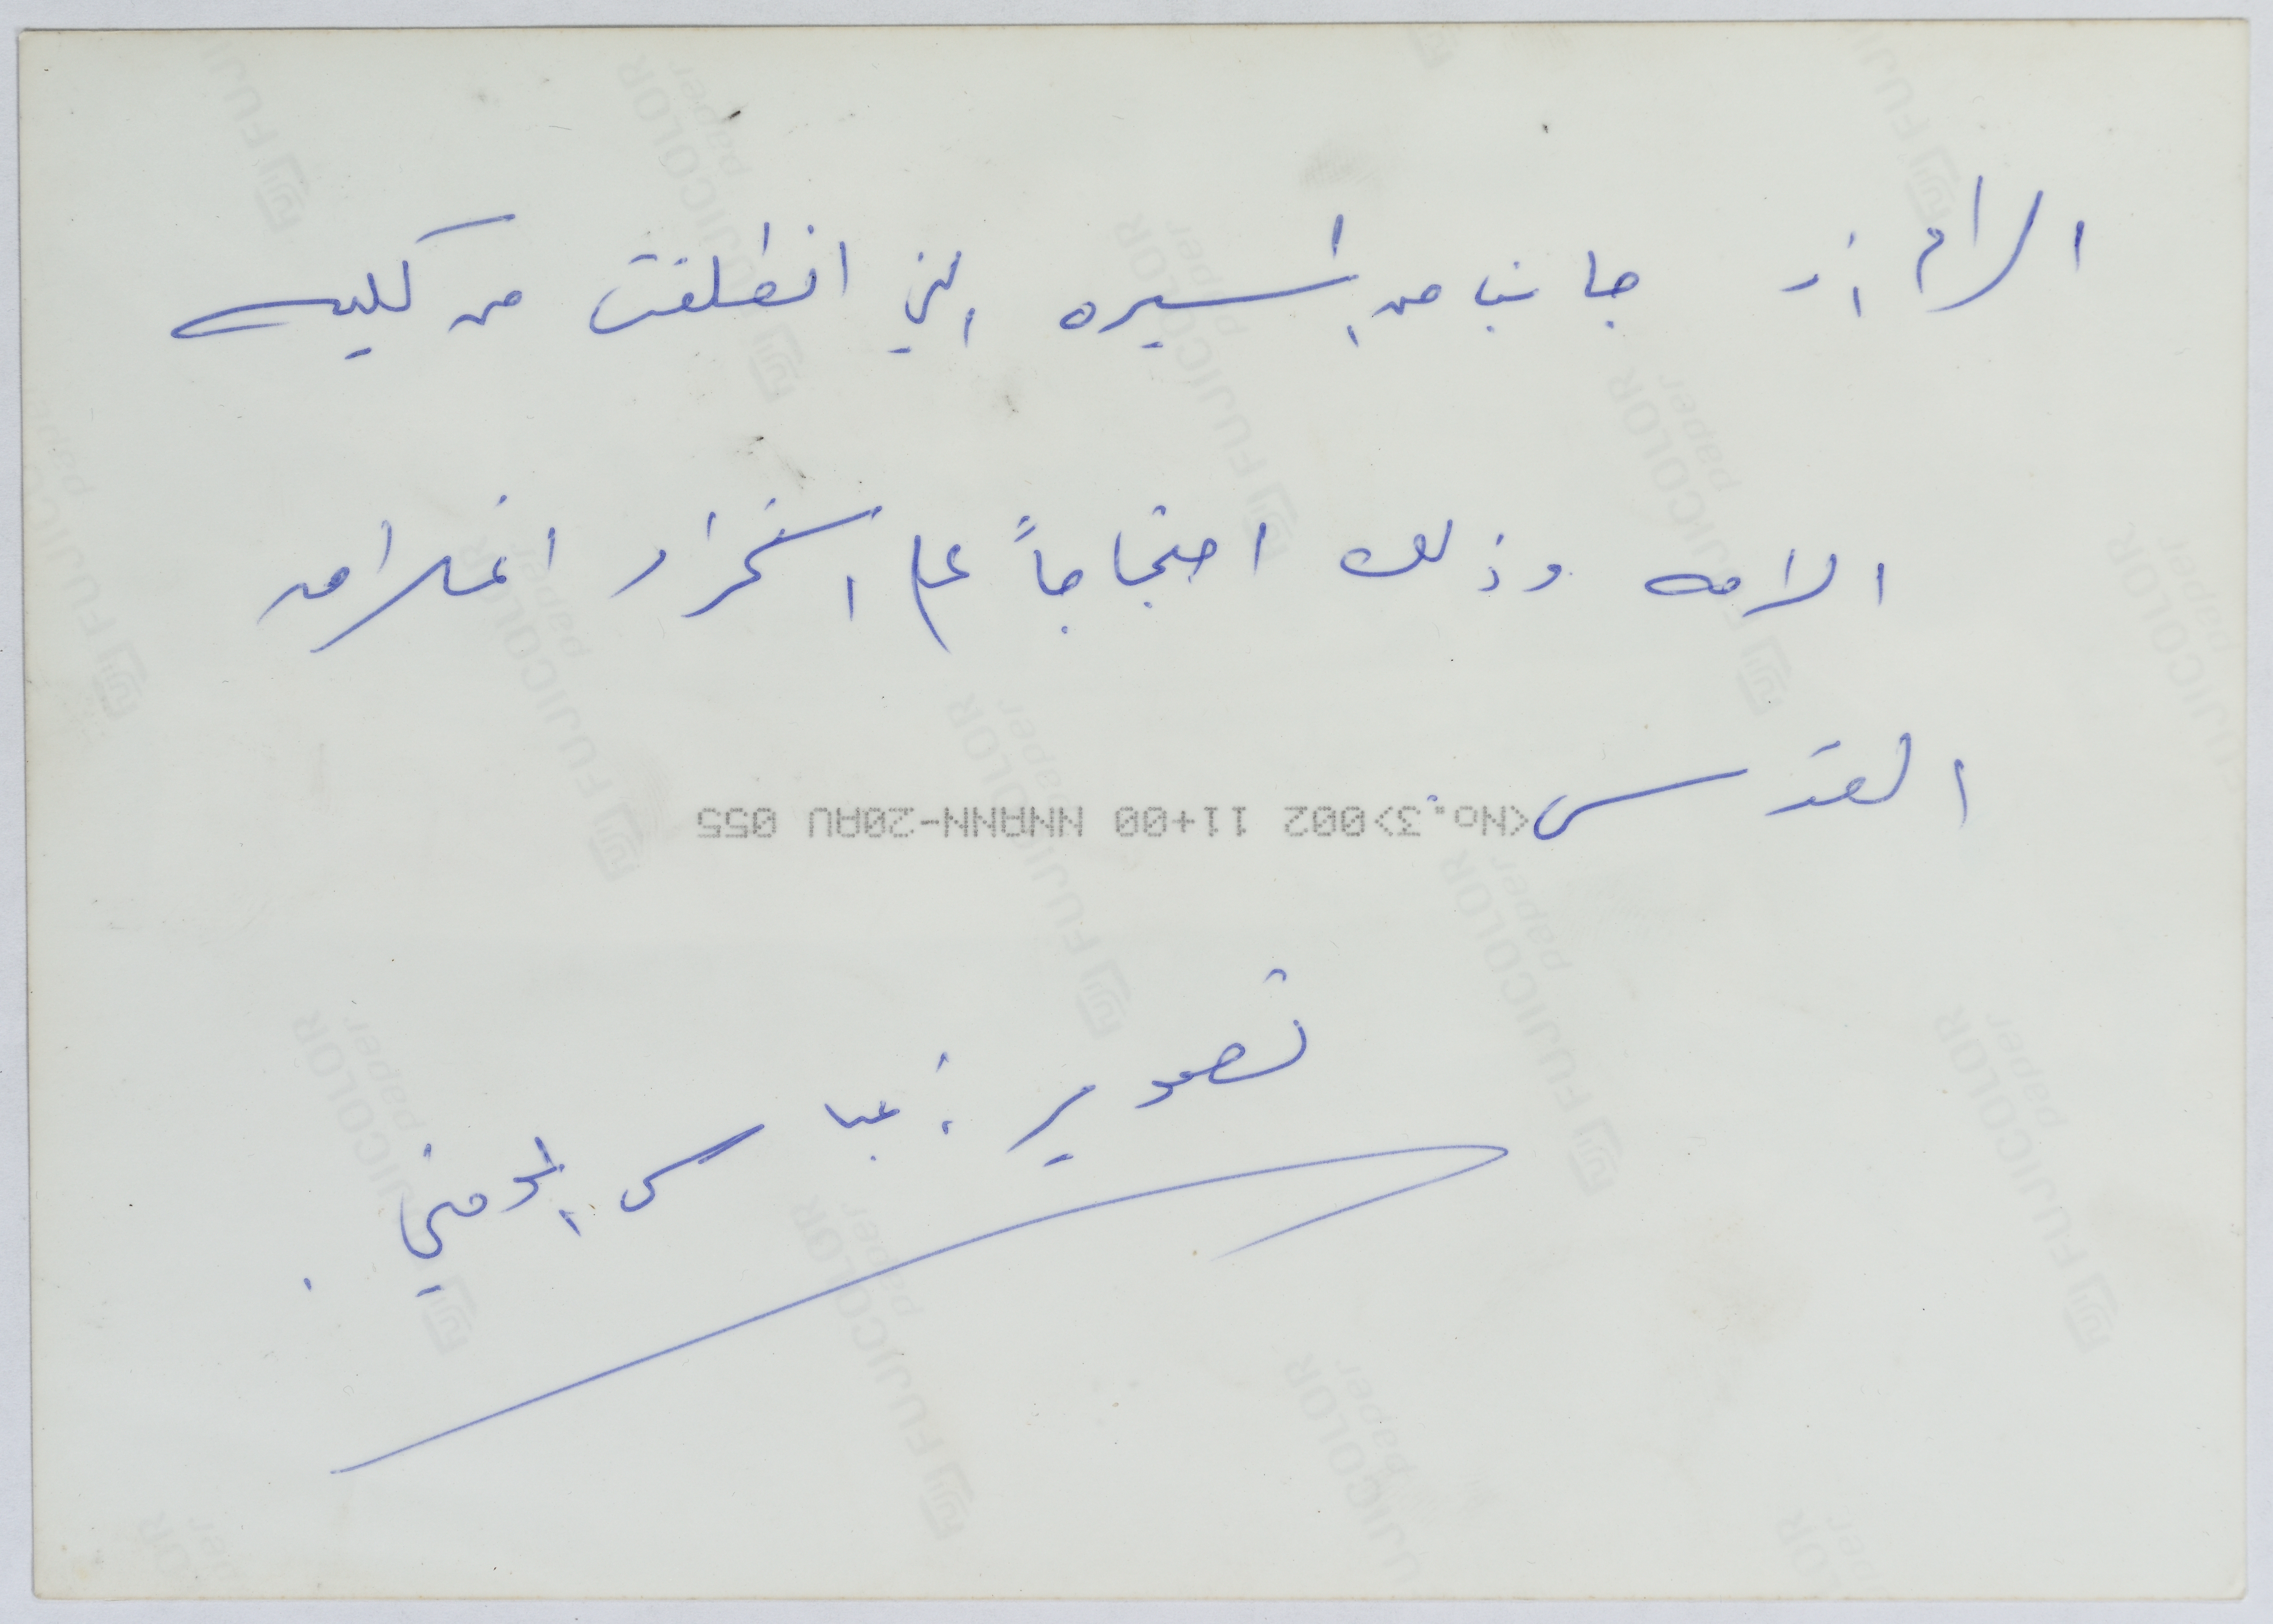 الرام أز جانب من المسيره التي انطلقت من كليه
الامه وذلك احتجاجاً على استمرار اغلاق
القدس.
<No.3>002 11+00 NNANN-20AU 055
تصوير : عباس المومني .
FUJICOLOR paper